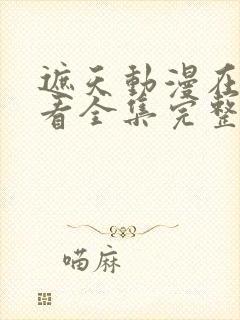 遮天動漫在
看全集完整
喵麻